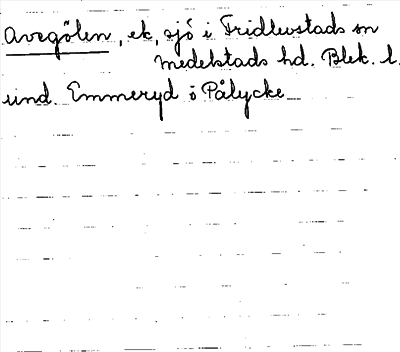 Avegölen, ek, sjö i Fridlevstads sn
Medelstads hd. Blek. l.
und. Emmeryd ö Pålycke